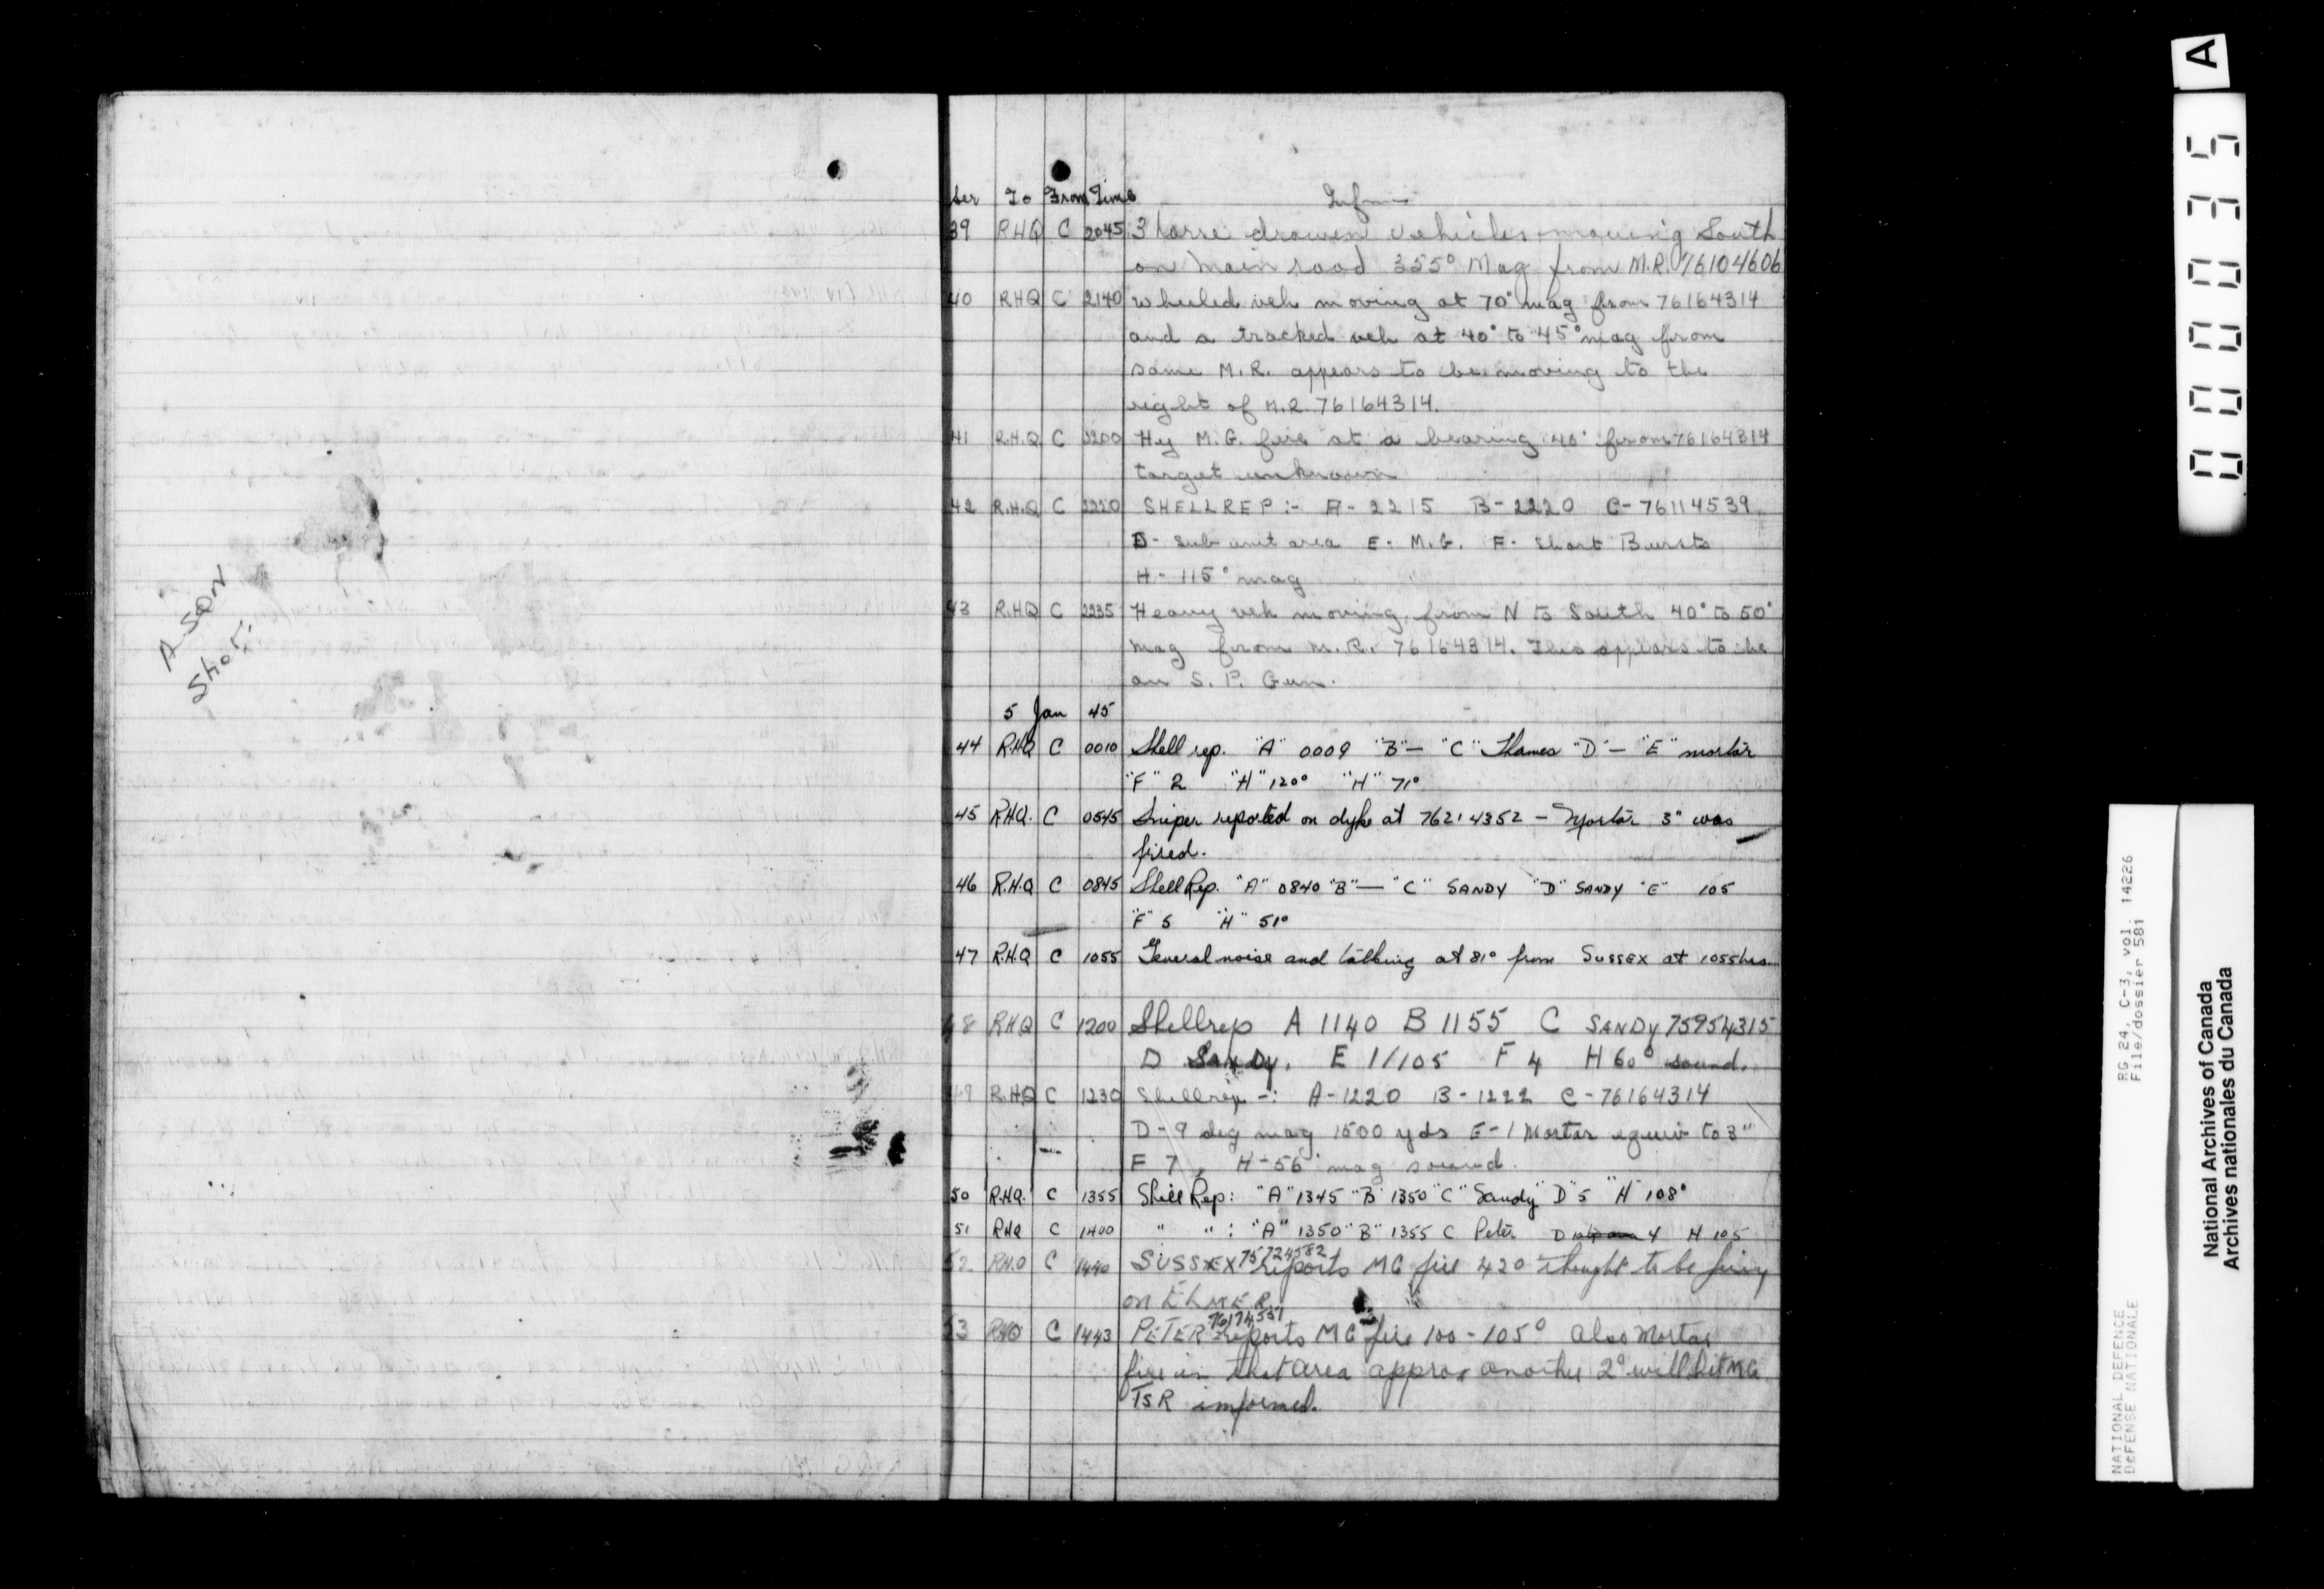 A SON
SHOT.
Ser To From Time Infm
39 RHQ C 2045 3 horse drawen vehicles moving South
on main road 355° Mag from M.R. 76104606
40 RHQ C 2140 wheeled veh moving at 70° mag from 76164314
and a tracked veh at 40° to 45° mag from
same M.R. appears to be moving to the
right of M.R. 76164314.
41 R.H.Q C 2200 Hy M.G. fire at a bearing 40° from 76164314
target unknown
42 R.H.Q C 2220 SHELLREP:- A- 2215 B- 2220 C- 76114539
D- Sub unit area E- M.G. F- Short Bursts
H- 115° mag
43 R.HQ C 2235 Heavy veh moving from N to South 40° to 50°
mag from M.R. 76164314. This appears to be
an S.P. Gun.
5 Jan 45
44 R.HQ C 0010 Shell rep. "A" 0009 "B" — "C" Thames "D" — "E" mortar
"F" 2 "H" 120° "H" 71°
45 RHQ. C 0545 Sniper reported on dyke at 76214352 - Mortar 3" was
fired.
46 R.H.Q C 0845 Shell Rep. "A" 0840 "B" — "C" SANDY "D" SANDY "E" 105
"F" 5 "H" 51°
47 R.H.Q C 1055 General noise and talking at 81° from SUSSEX at 1055 hrs.
48 RHQ C 1200 Shellrep A 1140 B 1155 C SANDY 75954315
D SANDy. E 1/105 F 4 H 60° sound.
49 R.HQ C 1230 Shellrep -: A-1220 B-1222 C-76164314
D-9 deg mag 1500 yds E-1 Mortar equiv to 3"
F 7, H-56° mag sound.
50 R.HQ. C 1355 Shell Rep: "A" 1345 "B" 1350 "C" Sandy "D" 5 "H" 108°
51 RHQ C 1400 " " : "A" 1350 "B" 1355 C Peter D 4 H 105
52 RH.Q C 1440 SUSSEX 75724582 reports MG fire 420 thought to be firing
on ELMER.
53 RHQ C 1443 PETER 76174551 reports MG fire 100 - 105° also Mortar
fire in that area approx another 2° will hit MG.
TSR informed.
A
000035
RG 24, C-3, vol. 14226
File/dossier 581
NATIONAL DEFENCE
DEFENSE NATIONALE
National Archives of Canada
Archives nationales du Canada